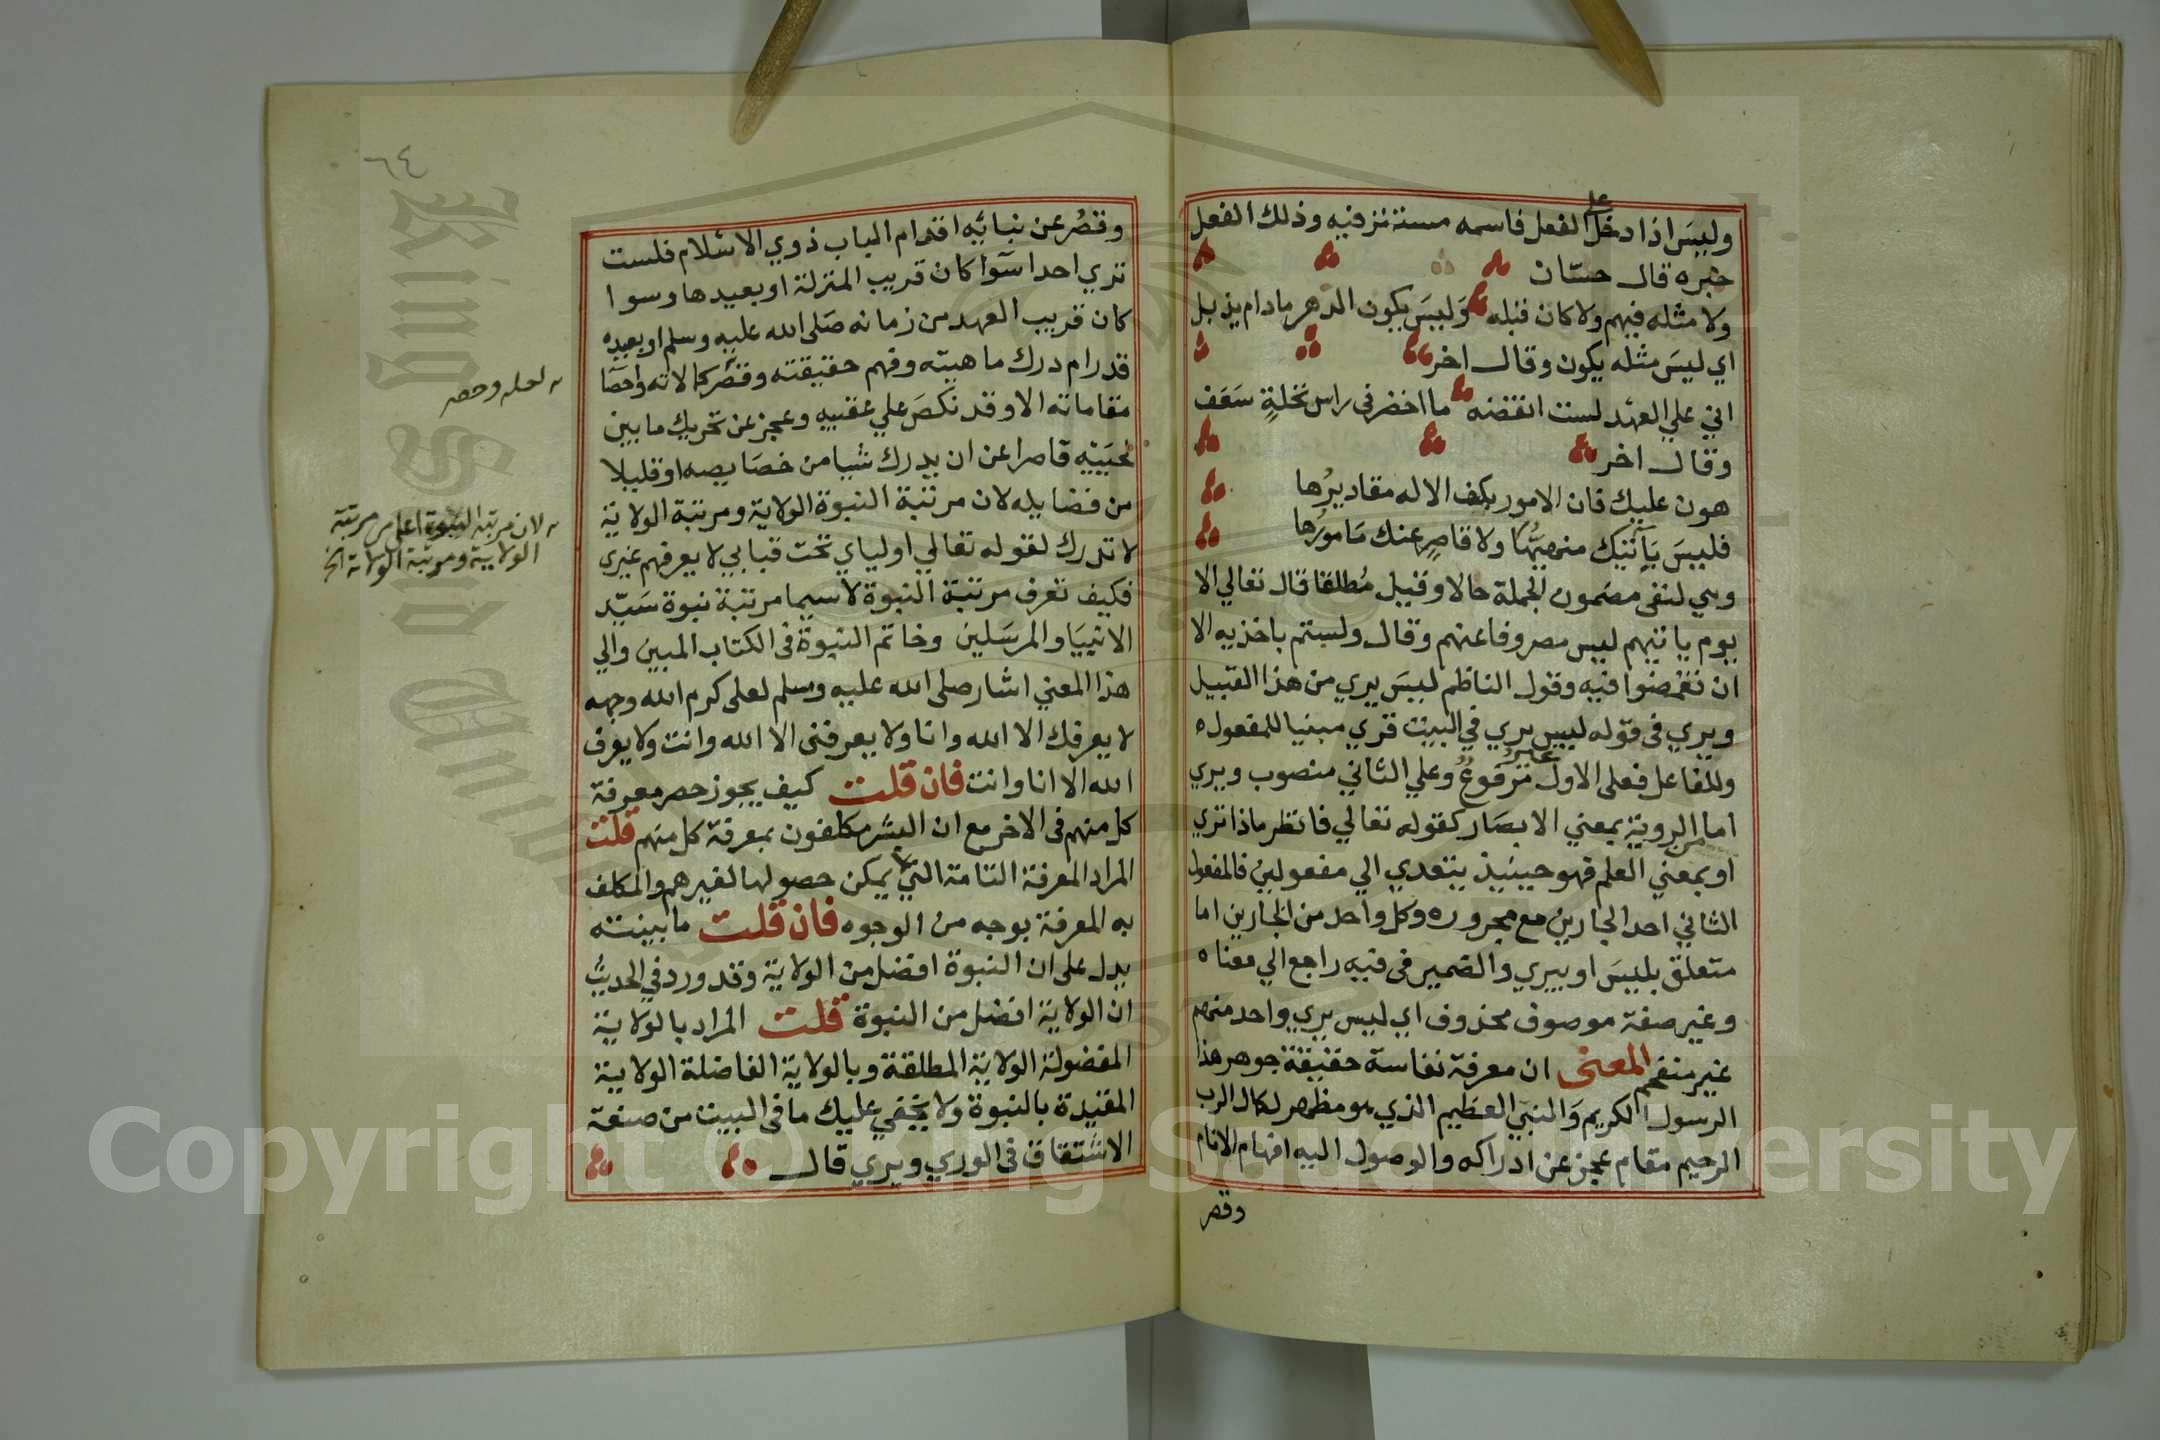 وليس اذا دخل على الفعل فاسمه مستتر فيه وذلك الفعل
خبره قال حسان
ولا مثله فيهم ولا كان قبله وَليسَ يكون الدهر مادام يذبل
اي ليسَ مثله يكون وقال اخر
اني علي العهد لست انقضه ما اخضر في راس نخلةٍ سَعَف
وقال اخر
هون عليك فان الامور بكف الاله مقاديرُها
فليسَ يَآتيك منهيُّها ولا قاصرٍ عنك مَامورُها
وهي لنفي مضمون الجملة حالا وقيل مُطلقا قال تعالي الا
يوم ياتيهم ليس مصروفا عنهم وقال ولستم باخذيه الا
ان تغمضوا فيه وقول الناظم ليسَ يري من هذا القبيل
ويري في قوله ليس يري في البيت قري مبنيا للمفعول ٥
وللفاعل فعلى الاول غير مَرفوعٌ وعلي الثاني منصوب ويري
اما من الروية بمعني الابصَار كقوله تعالي فانظر ماذا تري
او بمعني العلم فهو حينيذ يتعدي الي مفعولين فالمفعول
الثاني احد الجارين مع مجروره وكل واحد من الجارين اما
متعلق بليسَ او بيري والضمير في فيه راجع الي معناه
وغير صفة موصوف محذوف اي ليس يري واحد منهم
غير منفحم المعنى ان معرفة نفاسة حقيقة جوهر هذا
الرسول الكريم وَالنبي العظيم الذي هو مظهر لكمال الرب
الرحيم مقام عجز عن ادراكه والوصول اليه افهام الانام
وقصر
٦٤
وقصُر عن نيائيه اقدام الباب ذوي الاسلام فلست
تري احدا سَوٓا كان قريب المنزلة او بعيدها وسوا
كان قريب العهد من زمانه صَلى الله عليه وسلم او بعيده
قد رام درك ماهيته وفهم حقيقته وقصر كمالاته واحصآ
مقاماته الا وقد نكصَ علي عقبيه وعجز عن تحريك ما بين
لحيَيْه قاصرا عن ان يدرك شيا من خصَايصه او قليلا
من فضايله لان مرتبة النبوة الولاية ومرتبة الولاية
لا تدرك لقوله تعالي اوليا‌ي تحت قبابي لا يعرفهم غيري
فكيف تعرف مرتبة النبوة لاسيما مرتبة نبوة سَيّد
الانبيَا والمرسَلين وخاتم النبوة في الكتاب المبين والي
هذا المعني اشار صلى الله عليه وسلم لعلى كرم الله وجهه
لا يعرفك الا الله وانا ولا يعرفني الا الله وانت ولا يعرف
الله الا انا وانت فان قلت كيف يجوز حصر معرفة
كل منهم في الاخر مع ان البشر مكلفون بمعرفة كل منهم قلت
المراد المعرفة التامة التي لا يمكن حصولها لغيرهم والمكلف
به المعرفة بوجه من الوجوه فان قلت ما بينته
يدل على ان النبوة افضل من الولاية وقد ورد في الحديث
ان الولاية افضل من النبوة قلت المراد بالولاية
المفضولة الولاية المطلقة وبالولاية الفاضلة الولاية
المقيدة بالنبوة ولا يخفي عليك ما في البيت من صنعة
الاشتقاق في الوري ويري قال
لعله وحصر
لان مرتبة النبوة اعلى من مرتبة
الولاية ومرتبة الولاية الخ
Copyright © King Saud University